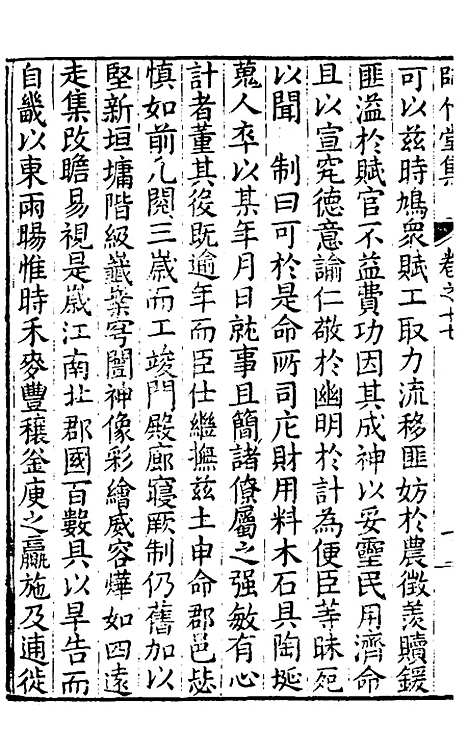 可以兹時鳩衆賦工取力流移匪妨於農徵羨贖鍰
匪溢於賦官不益費功因其成神以妥靈民用濟命
且以宣究德意諭仁敬於幽明於計為便臣等昧死
以聞　制曰可於是命所司庀財用料木石具陶埏
蒐人卒以某年月日就事且簡諸僚屬之强敏有心
計者董其後既逾年而臣仕繼撫兹土申命郡邑毖
慎如前凡閱三歲而工竣門殿廊寢厥制仍舊加以
堅新垣墉階級巀嶪穹閣神像彩繪威容燁如四遠
走集改瞻易視是歲江南北郡國百數具以旱告而
自畿以東雨暘惟時禾麥豐穰釜庾之贏施及逋徙
卷之十七